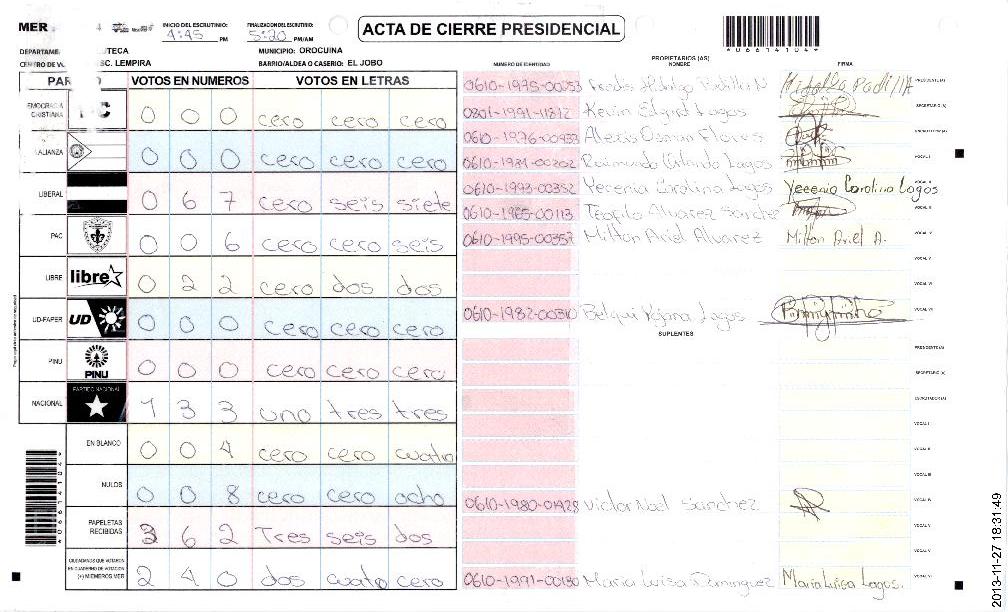 MER
INICIO DEL ESCRUTINIO:
4:45 PM
FINALIZACION DEL ESCRUTINIO:
5:20 PM/AM
ACTA DE CIERRE PRESIDENCIAL
DEPARTAME UTECA
MUNICIPIO: OROCUINA
CENTRO DE V SC. LEMPIRA
BARRIO/ALDEA O CASERIO: EL JOBO
NUMERO DE IDENTIDAD
PROPIETARIOS (AS)
NOMBRE
FIRMA
PAR VOTOS EN NUMEROS VOTOS EN LETRAS
EMOCRACIA CRISTIANA 0 0 0 cero cero cero
ALIANZA 0 0 0 cero cero cero
LIBERAL 0 6 7 cero seis siete
PAC 0 0 6 cero cero seis
LIBRE libre 0 2 2 cero dos dos
UD-FAPER UD 0 0 0 cero cero cero
PINU PINU 0 0 0 cero cero cero
NACIONAL PARTIDO NACIONAL 1 3 3 uno tres tres
EN BLANCO 0 0 4 cero cero cuatro
NULOS 0 0 8 cero cero ocho
PAPELETAS RECIBIDAS 3 6 2 Tres seis dos
CIUDADANOS QUE VOTARON EN CUADERNO DE VOTACION (+) MIEMBROS MER 2 4 0 dos cuatro cero
0610-1975-00053 Padilla N Padilla PRESIDENTE (A)
0801-1991-11872 Kevin Edgardo Lagos SECRETARIO (A)
0610-1976-00933 Alexis Osman Flores ESCRUTADOR (A)
0610-1981-00202 Raimundo Orlando Lagos VOCAL I
0610-1993-00352 Yecenia Carolina Lagos Yecenia Carolina Lagos VOCAL II
0610-1985-00113 Teofilo Alvarez Sanchez VOCAL III
0610-1995-00357 Milton Ariel Alvarez Milton Ariel A. VOCAL IV
VOCAL V
VOCAL VI
0610-1982-00310 Lagos VOCAL VII
SUPLENTES
PRESIDENTE (A)
SECRETARIO (A)
ESCRUTADOR (A)
VOCAL I
VOCAL II
VOCAL III
0610-1980-01428 Victor Noel Sanchez VOCAL IV
VOCAL V
VOCAL VI
0610-1991-00180 Maria Luisa Dominguez Maria Luisa Lagos.
2013-11-27 18:31:49